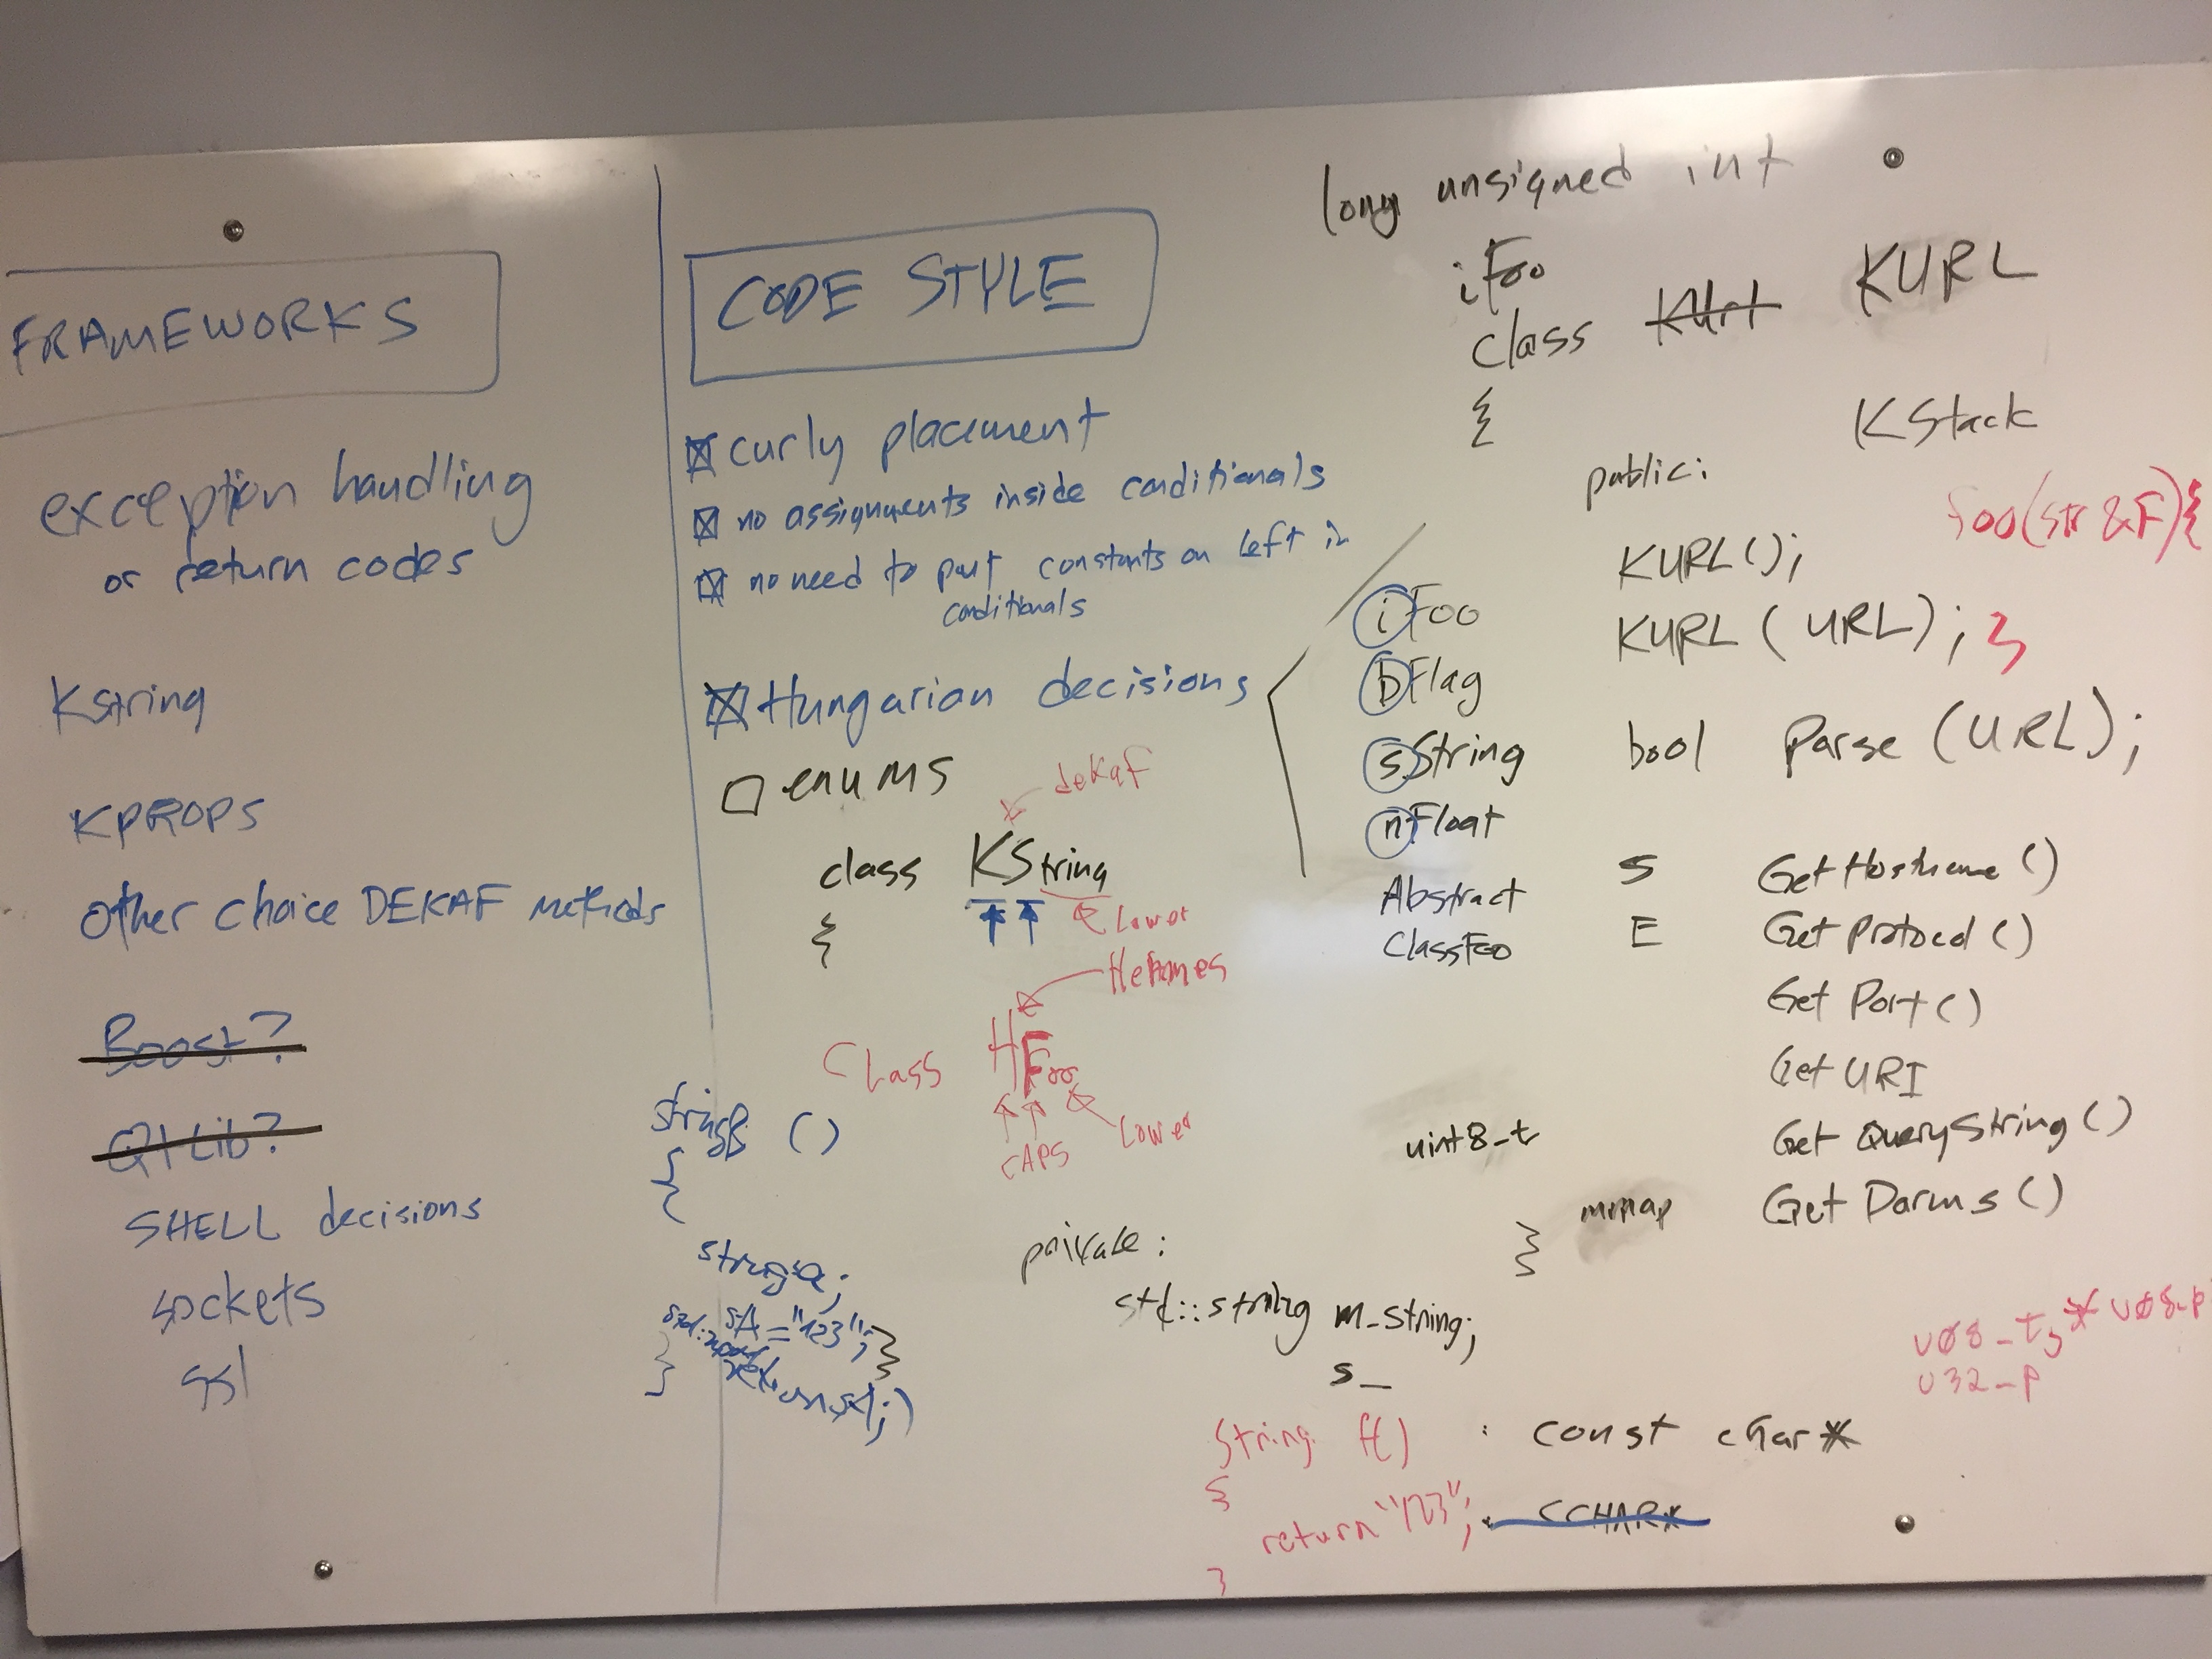 FRAMEWORKS
exception handling
or return codes
Kstring
KPROPS
Other choice DEKAF methods
Boost?
QtLib?
SHELL decisions
sockets
ssl
CODE STYLE
curly placement
no assignments inside conditionals
no need to put constants on left in
conditionals
Hungarian decisions
enums
dekaf
class KString
{
Lower
Hermes
Class HFoo
CAPS
Lower
string ()
{
string a;
= "123";
}
}
private:
std::string m_string;
s_
String f()
{
return "123";
}
iFoo
bFlag
sString
nFloat
Abstract
ClassFoo
uint8_t
long unsigned int
iFoo
class Kurl KURL
{
KStack
public:
foo(str &F){
KURL();
KURL (URL); }
bool Parse (URL);
S GetHostname ()
E Get Protocol ()
Get Port ()
Get URI
Get QueryString ()
mmap Get Parms ()
}
U32_p
const char*
CCHAR*